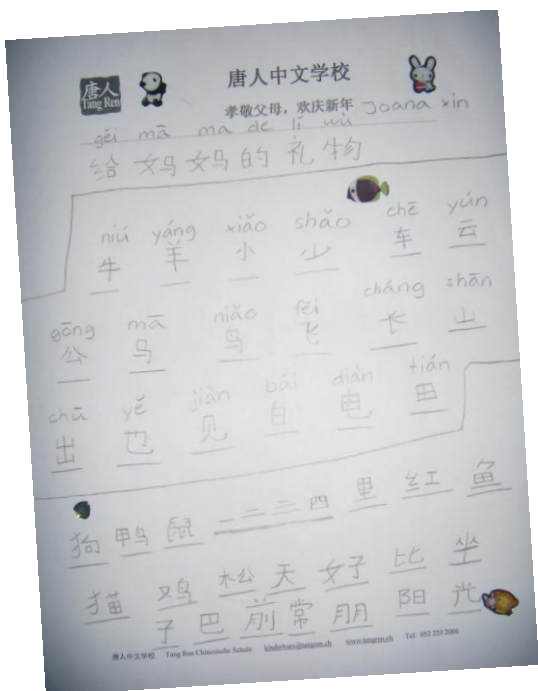 唐人中文学校
唐人
Tang Ren
孝敬父母，欢庆新年 Joana xin
gěi mā ma de lǐ wù
给 妈 妈 的 礼 物
niú yáng xiǎo shǎo chē yún
牛 羊 小 少 车 云
gōng mā niǎo fēi cháng shān
公 马 鸟 飞 长 山
chū yě jiàn bái diàn tián
出 也 见 白 电 田
狗 鸭 鼠 一 二 三 四 里 红 鱼
猫 鸡 松 天 好 比 坐
子 巴 前 常 朋 阳 光
唐人中文学校 Tang Ren Chinesische Schule kinderkurs@tangren.ch www.tangren.ch Tel: 052 223 2008